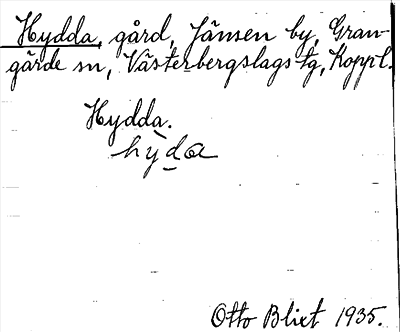 Hydda, gård, Jänsen by, Gran-
gärde sn, Västerbergslags tg, Koppl.
Hydda.
hyda
Otto Blixt 1935.